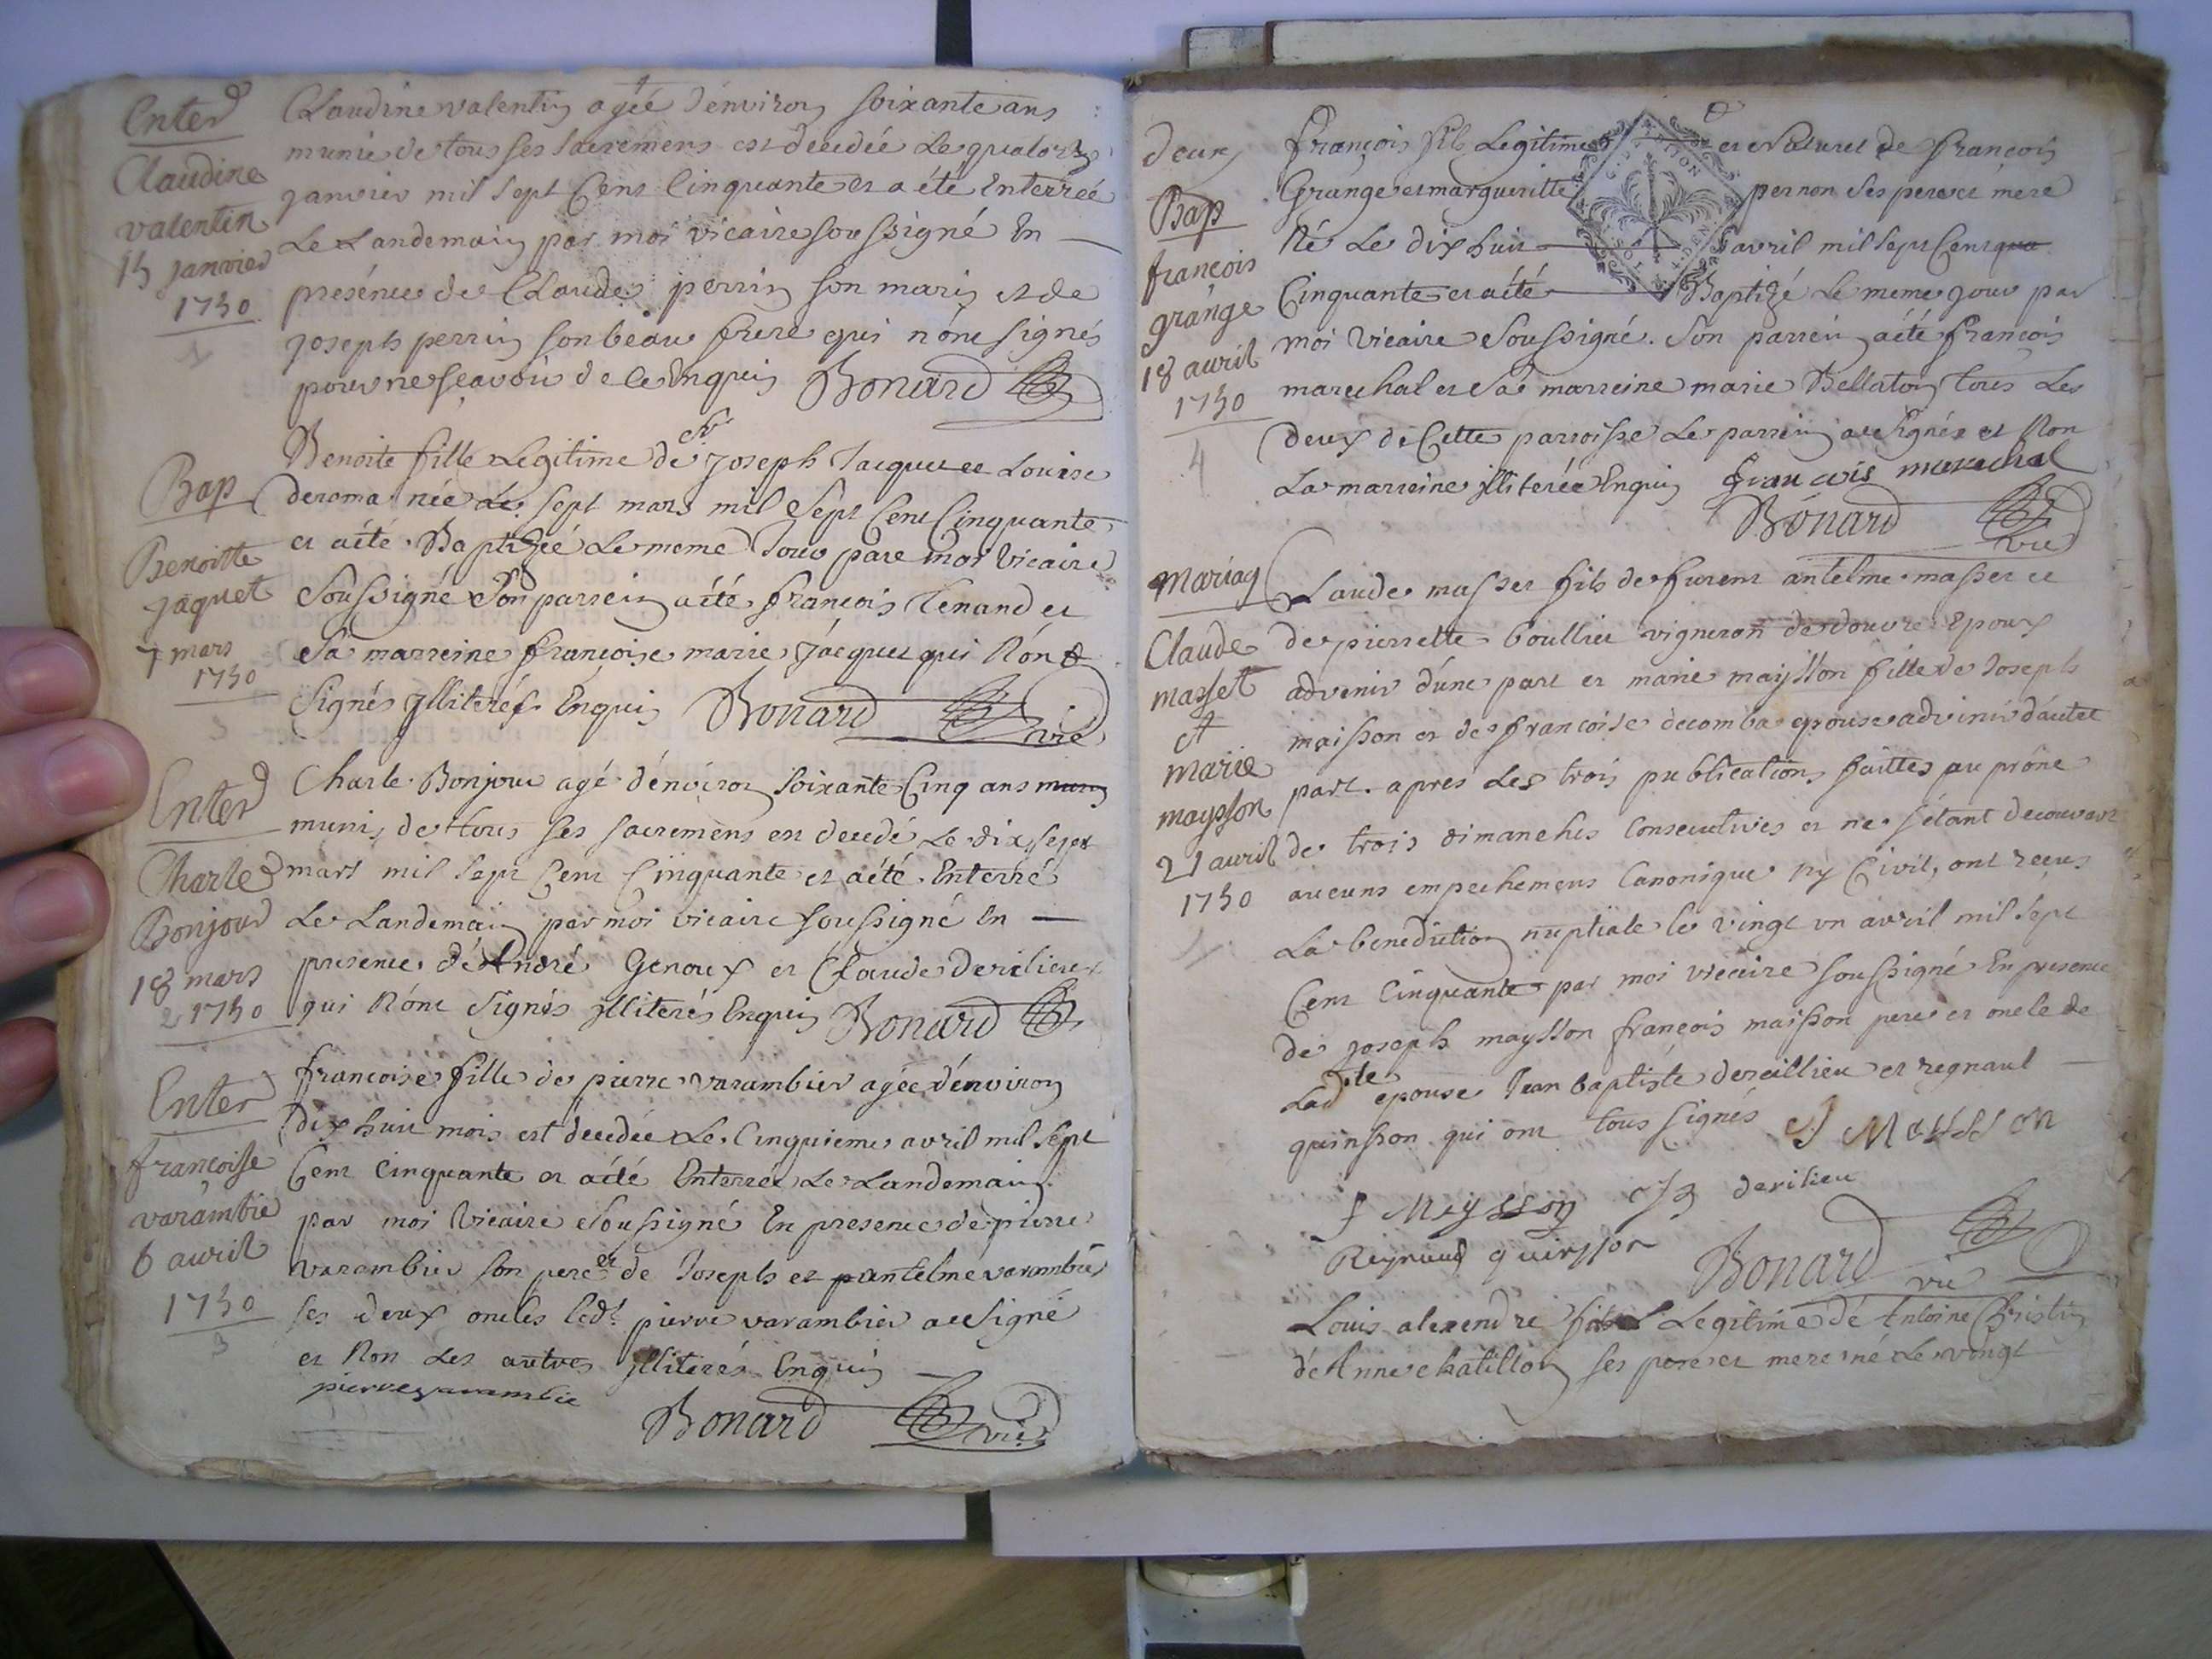 Enter
Claudine
valentin
15 janvier
1750
Claudine valentin agéé d'environ soixante ans
munie de tous ses sacremens est decedée le quatorze
janvier mil sept Cent Cinquante et a été Enterréé
Le Landemain par moi vicaire soussigné En
présence de Claude perrin son marij et de
joseph perrin son beau frere qui n'ont signés
pour ne sçavoir de ce Enquis Bonard
Bap
Benoitte
jaquet
7 mars
1750
Benoite fille Legitime de sr joseph Jacquet et Louise
deroma née le sept mars mil sept Cent Cinquante
et a été Baptizéé Le meme Jour pare moi vicaire
Soussigné Son parrein a été françois Tenand et
Sa marreine françoise marie Jacquet qui N'ont
Signés jlliterés Enquis Bonard vic
Enter
Charle
Bonjour
18 mars
2 1750
Charle Bonjour agé d'environ soixante Cinq ans
munis de tous ses sacremens est decedé Le dix sept
mars mil sept Cent Cinquante et a été Enterré
Le Landemain par moi vicaire soussigné En
presence d'André Genoux et Claude derilieux
qui N'ont signés jlliterés Enquis Bonard
Enter
françoise
varambié
6 avril
1750
3
françoise fille de pierre varambier agée d'environ
dix huit mois est decedée Le Cinquieme avril mil sept
Cent Cinquante et a été Enterrée Le Landemain
par moi vicaire soussigné En presence de pierre
varambier son pere et de Joseph et antelme varambier
ses deux oncles ledt pierre varambier a signé
et Non Les autres jlliterés Enquis
pierre varambie
Bonard vic
deux
Bap
françois
grange
18 avril
1750
4
françois fils Legitime et Naturel de françois
Grange et margueritte pernon ses pere et mere
Né Le dix huit avril mil sept Cent
Cinquante et a été Baptizé Le meme jour par
moi vicaire Soussigné. Son parrein a été françois
marechal et Sa marreine marie Bellaton tous Les
deux de Cette parroisse Le parrein a signé et Non
La marreine jlliterée Enquis françois marechal
Bonard vic
Mariag
Claude
masset
et
marie
maysson
21 avril
1750
Claude masset fils de furent antelme masset et
de pierrette boullieu vigneron de douvre Epoux
advenir d'une part et marie maysson fille de Joseph
maisson et de françoise decomba epouse advenir d'autre
part. apres Les trois publications faittes au prône
de trois dimanches Consecutives et ne s'étant decouvert
aucuns empechemens Canonique ny Civil, ont reçus
La benediction nuptiale le vingt un avril mil sept
Cent Cinquante par moi vicaire soussigné En presence
de joseph maysson françois maisson pere et oncle de
Ladte epouse Jean baptiste dereillieu et regnaut
quinsson qui ont tous signés J Meysson
f Meysson JB derilieu
Reynaud quinsson Bonard vic
Louis alexendre fils Legitime de Antoine Christin
d'Anne chatillon ses pere et mere né Le vingt